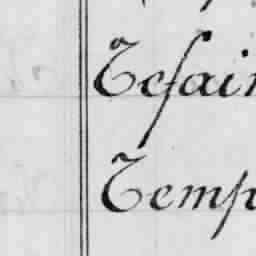 Teſai
Temp